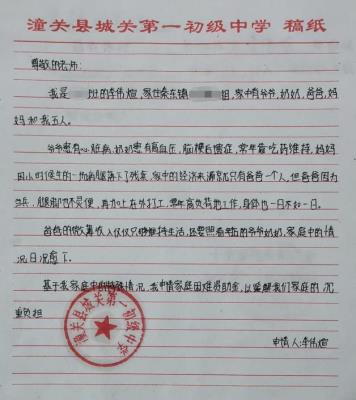 潼关县城关第一初级中学 稿纸
尊敬的老师：
我是 班的李伟煊，家住秦东镇 组，家中有爷爷，奶奶，爸爸，妈
妈和我五人。
爷爷患有心脏病，奶奶患有高血压，脑梗后遗症，常年靠吃药维持，妈妈
因小时候生的一场病腿落下了残疾，家中的经济来源就只有爸爸一个人，但爸爸因为
当兵，腿脚也不灵便，再加上在外打工，常年高负荷地工作，身体也一日不如一日。
爸爸的微薄收入仅仅只够维持生活，还要照看年迈的爷爷奶奶，家庭中的情
况日况愈下。
基于我家庭中的特殊情况，我申请家庭困难资助金，以缓解我们家庭的沉
重负担
潼关县城关第一初级中学
申请人：李伟煊